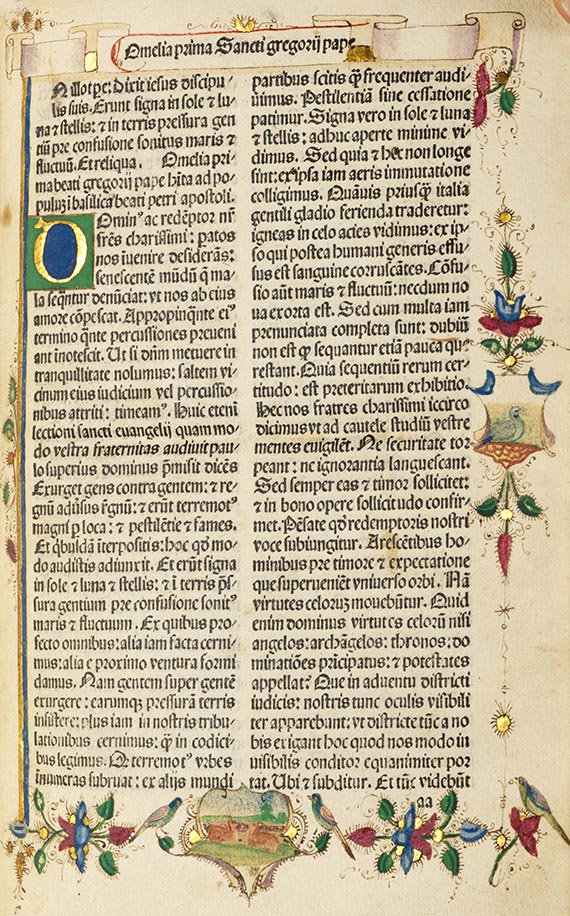 Omelia prima Sancti gregorij pape
N illo tpe: Dixit iesus discipu⸗
lis suis. Erunt signa in sole ⁊ lu⸗
na ⁊ stellis: ⁊ in terris pressura gen
tiū pre confusione sonitus maris ⁊
fluctuū. Et reliqua. Omelia pri⸗
ma beati gregorij pape hīta ad po⸗
pulū ī basilica beati petri apostoli.
Omin⁹ ac redēptor nr̄
fr̄es charissimi: patos
nos īuenire desiderās:
senescentē mūdū q̄ ma⸗
la seq̄ntur denūciat: vt nos ab eius
amore cōpescat. Appropinq̄nte ei⁹
termino q̄nte percussiones preveni
ant īnotescit. Ut si dn̄m metuere in
tranquillitate nolumus: saltem vi
cinum eius iudicium vel percussio⸗
nibus attriti: timeam⁹. Huic eteni
lectioni sancti euangelij quam mo⸗
do vestra fraternitas audiuit pau⸗
lo superius dominus p̄misit dicēs
Exurget gens contra gentem: ⁊ re⸗
gnū aduersus r̄gnū: ⁊ erūt terremot⁹
magni p̱ loca: ⁊ pestilētie ⁊ fames.
Et q̄busdā īterpositis: hoc qd̄ mo⸗
do audistis adiunxit. Et erūt signa
in sole ⁊ luna ⁊ stellis: ⁊ ī terris p̄s⸗
sura gentium pre confusione sonit⁹
maris ⁊ fluctuum. Ex quibus pro⸗
fecto omnibus: alia iam facta cerni⸗
mus: alia e proximo ventura formi
damus. Nam gentem super gentē
exurgere: earumq̄ pressurā terris
insistere: plus iam in nostris tribu⸗
lationibus cernimus: q̄ in codici⸗
bus legimus. Qd̄ terremot⁹ vrbes
inumeras subruat: ex alijs mundi
partibus scitis q̄ frequenter audi⸗
uimus. Pestilentiā sine cessatione
patimur. Signa vero in sole ⁊ luna
⁊ stellis: adhuc aperte minime vi⸗
dimus. Sed quia ⁊ hec non longe
sint: ex ipsa iam aeris immutatione
colligimus. Quāuis priusq̄ italia
gentili gladio ferienda traderetur:
igneas in celo acies vidimus: ex ip⸗
so qui postea humani generis effu⸗
sus est sanguine corruscātes. Cōfu⸗
sio aūt maris ⁊ fluctuū: necdum no
ua exorta est. Sed cum multa iam
prenunciata completa sunt: dubiū
non est q̄ sequantur etiā pauca que
restant. Quia sequentiū rerum cer⸗
titudo: est preteritarum exhibitio.
Hec nos fratres charissimi iccirco
dicimus vt ad cautele studiū vestre
mentes euigilēt. Ne securitate tor⸗
peant: ne ignorantia languescant.
Sed semper eas ⁊ timor sollicitet:
⁊ in bono opere sollicitudo confir⸗
met. Pēsate qd̄ redemptoris nostri
voce subiungitur. Arescētibus ho⸗
minibus pre timore ⁊ expectatione
que superueniēt vniuerso orbi. Nā
virtutes celorum mouebūtur. Quid
enim dominus virtutes celorū nisi
angelos: archāgelos: thronos: do
minatiōes prīcipatus: ⁊ potestates
appellat? Que in aduentu districti
iudicis: nostris tunc oculis visibili
ter apparebunt: vt districte tūc a no
bis exigant hoc quod nos modo in
uisibilis conditor equanimiter por
tat. Ubi ⁊ subditur. Et tūc videbūt
aa